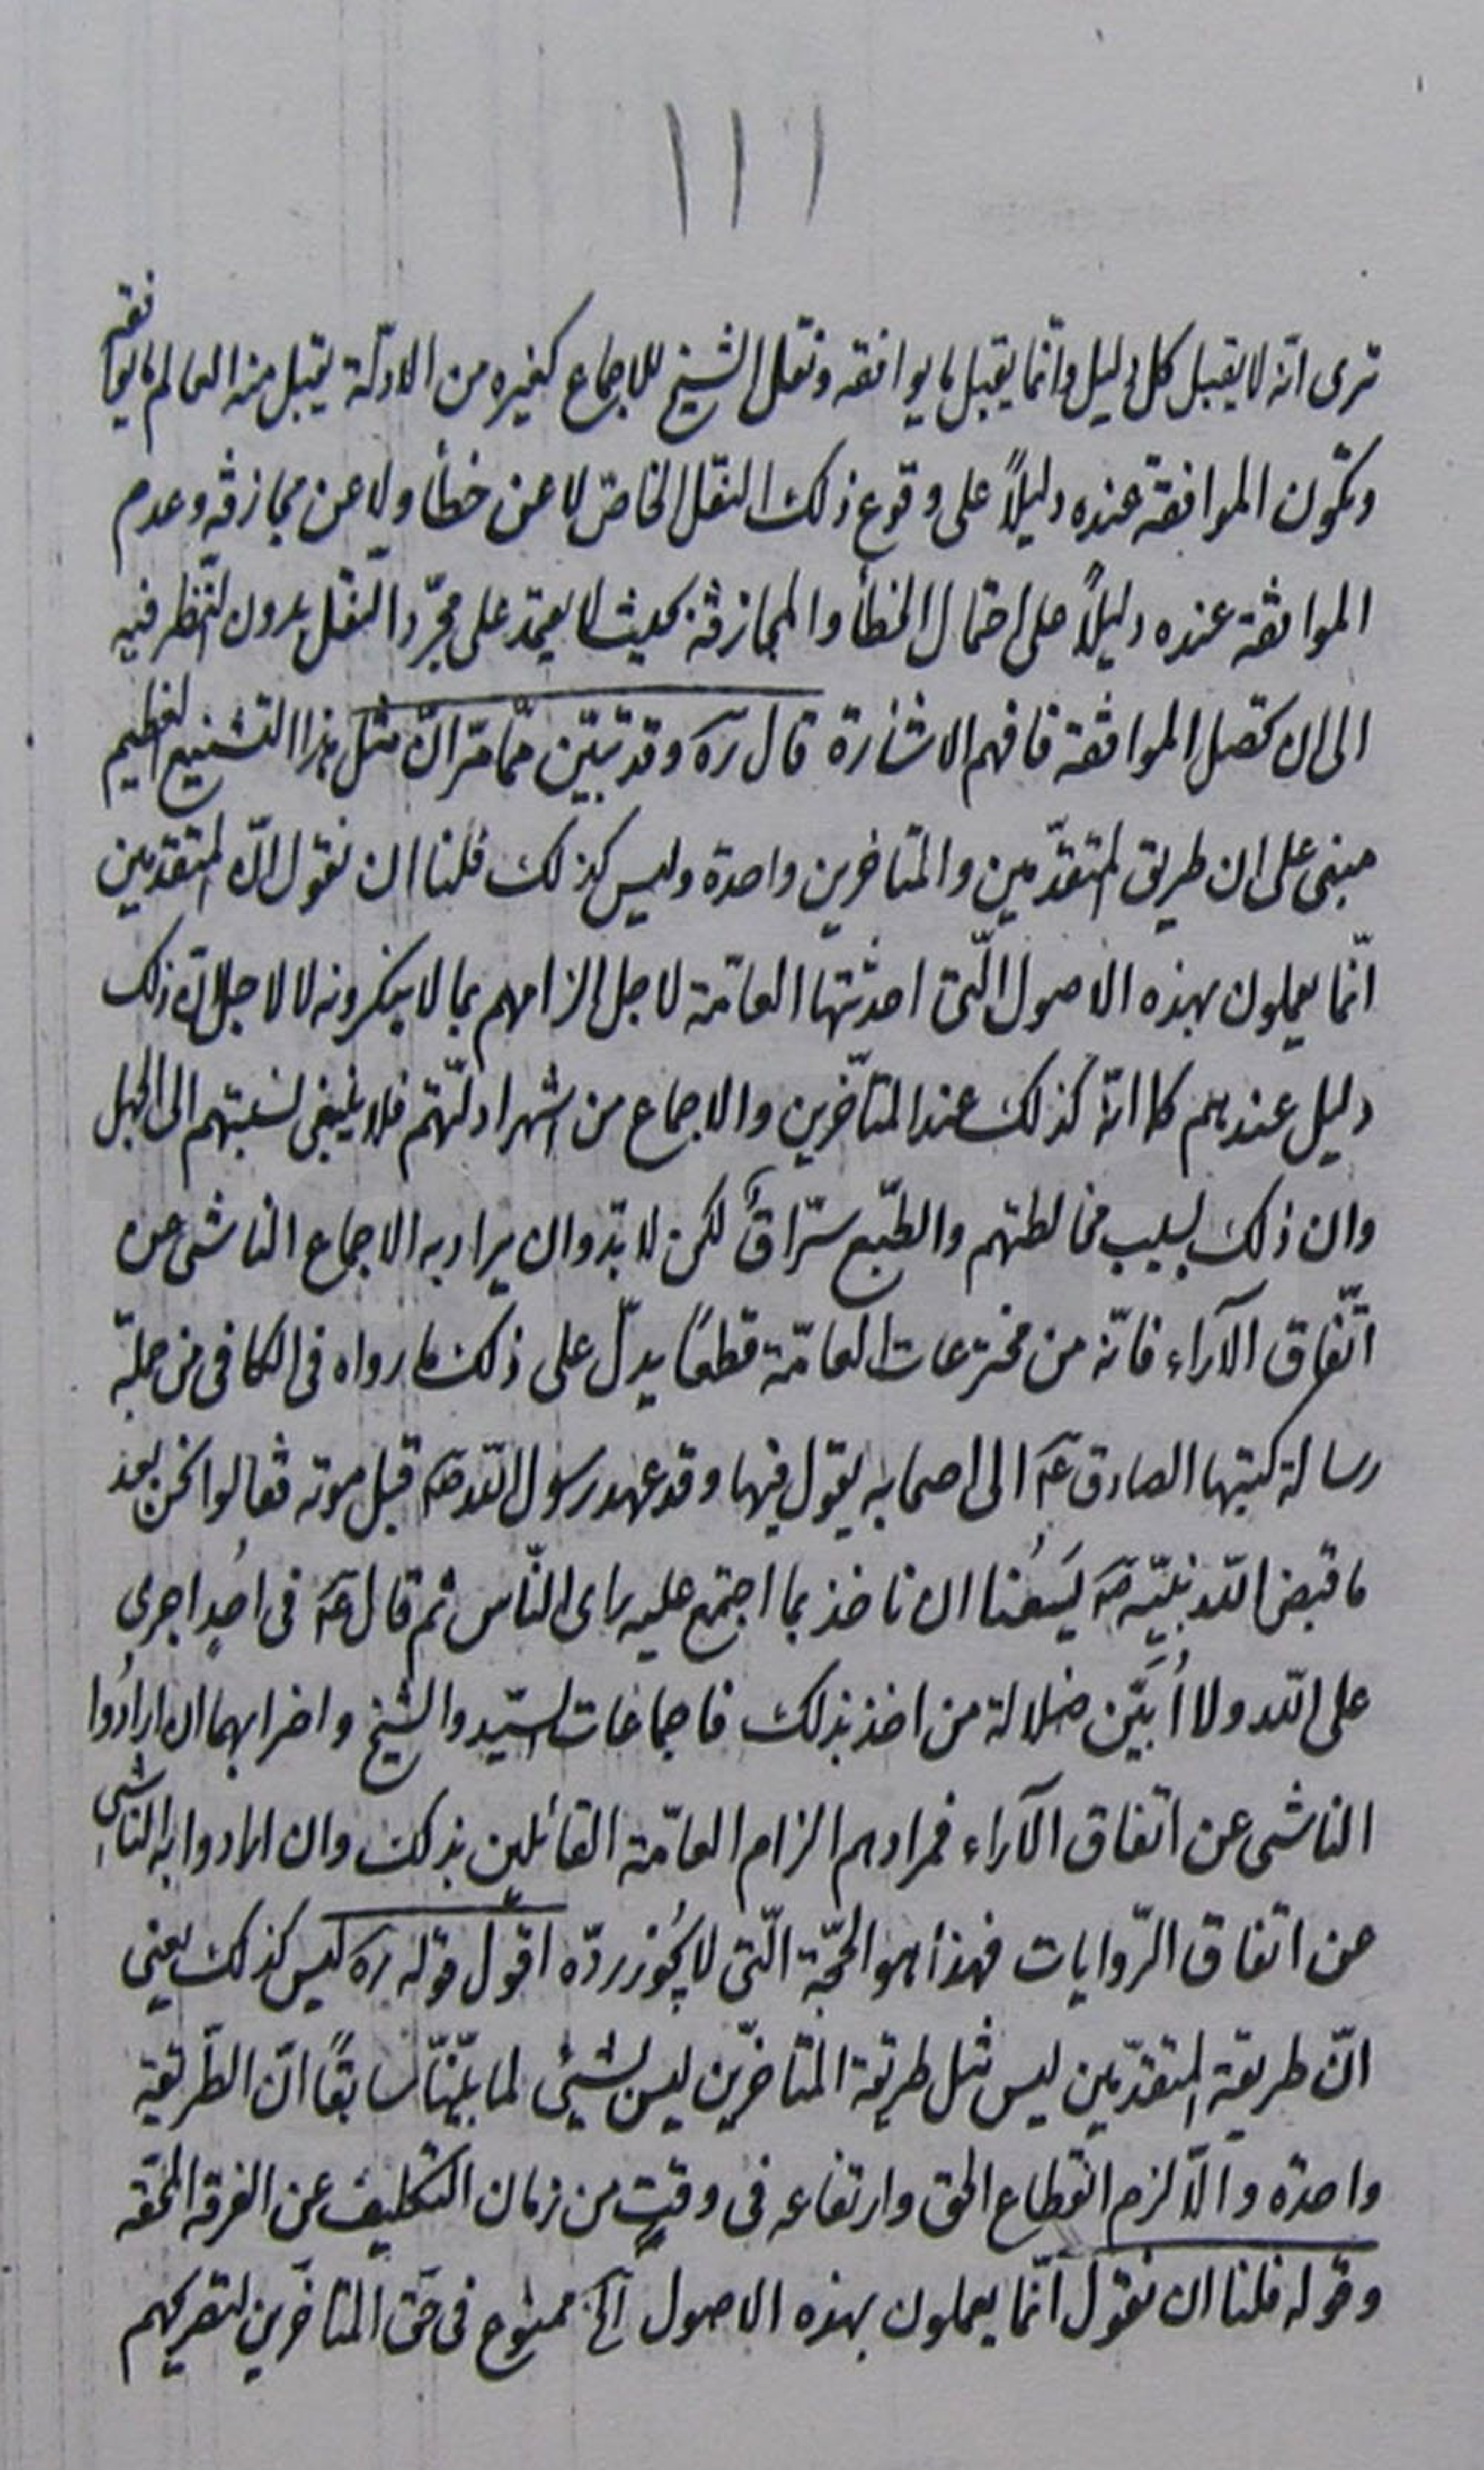 ١١١
ترى انّه لا يقبل كل دليل وانّما يقبل ما يوافقه ونقل الشيخ للاجماع كغيره من الادلّة يقبل منه العالم ما يوافقه
وتكون الموافقة عنده دليلاً على وقوع ذلك النقل الخاصّ لا عن خطأ ولا عن مجازفة وعدم
الموافقة عنده دليلاً على احتمال الخطأ والمجازفة بحيث لا يعتمد على مجرّد النقل بدون النّظر فيه
الى ان تحصل الموافقة فافهم الاشارة قال ره وقد تبيّن ممّا مرّ انّ مثل هذا التشنيع العظيم
مبنى على ان طريق المتقدّمين والمتاخرين واحدة وليس كذلك فلنا ان نقول انّ المتقدّمين
انّما يعملون بهذه الاصول الّتى احدثتها العامّة لاجل الزامهم بما لا ينكرونه لا لاجل انّ ذلك
دليل عندهم كما انّه كذلك عند المتأخّرين والاجماع من اشهر ادلّتهم فلا ينبغى نسبتهم الى الجهل
وان ذلك بسبب مخالطتهم والطّبع سرّاق لكن لا بدّ وان يراد به الاجماع الناشى عن
اتّفاق الآراء فانّه من مخترعات العامّة قطعًا يدلّ على ذلك ما رواه فى الكافى من جملة
رسالة كتبها الصادق عه الى اصحابه يقول فيها وقد عهد رسول اللّه صه قبل موته فقالوا نحن بعد
ما قبض اللّه نبيّه صه يَسَعُنا ان ناخذ بما اجتمع عليه راى النّاس ثم قال عه فى احدٍ اجرى
على اللّه ولا أبيَن ضلالة من اخذ بذلك فاجماعات السّيد والشّيخ واضرابهما ان ارادُوا
الناشى عن اتفاق الآراء فمرادهم الزام العامّة القائلين بذلك وان ارادوا به الناشى
عن اتفاق الرّوايات فهذا هو الحجّة الّتى لا يجُوز ردّه اقول قوله ره ليس كذلك يعنى
انّ طريقة المتقدّمين ليس مثل طريقة المتاخّرين ليس بشيئ لما بيّنّا سابقًا انّ الطّريقة
واحدة والّا لزم انقطاع الحق وارتفاعه فى وقتٍ من زمان التكليف عن الفرقه المحقّه
وقوله فلنا ان نقول انّما يعملون بهذه الاصول آلخ ممنوع فى حق المتاخّرين لتصريحهم